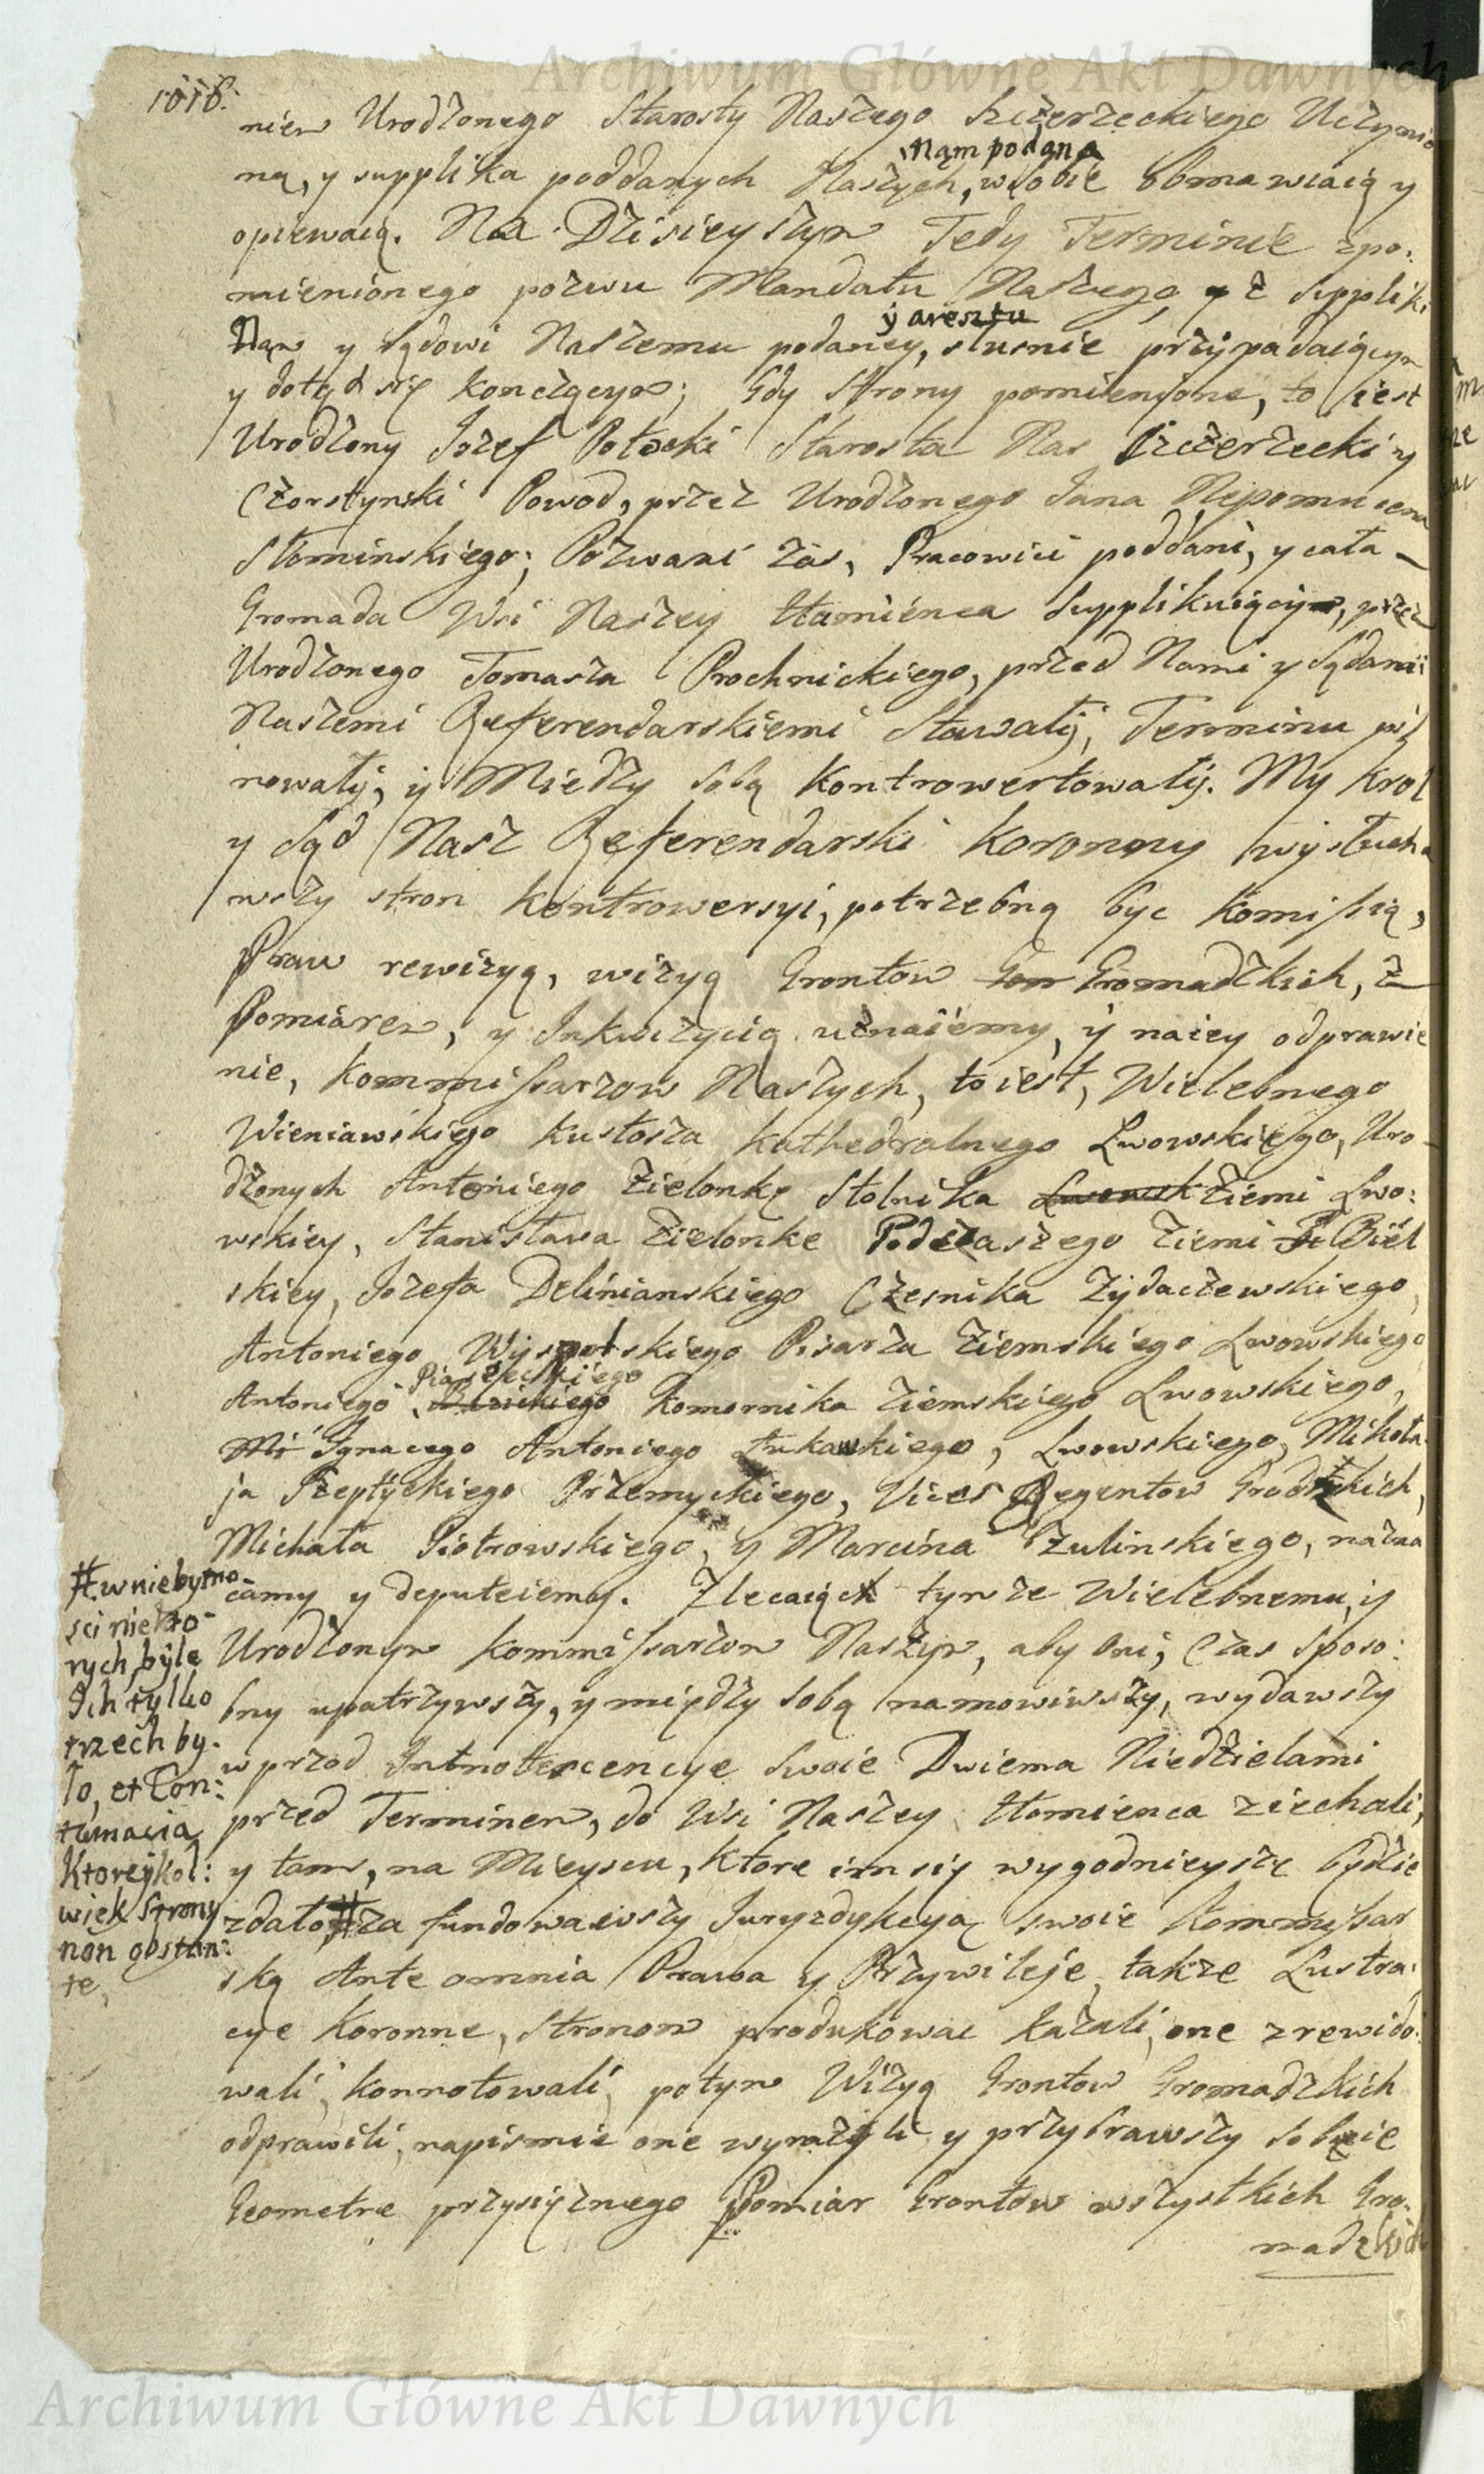 Archiwum Główne Akt Dawnych
1016.
niem Urodzonego Starosty Naszego Szczerzeckiego Uczynio
Nąm podana
ną, y supplika poddanych Naszych, w sobie obmawiaią y
opiewaią. Na Dzisieyszym Tedy Terminie zpo:
mienionego pozwu Mandatu Naszego, y z Suppliki
y aresztu
Nąm y Sądowi Naszemu podaney, słusnie przypadaiącym
y dotąd się konczącym; Gdy Strony pomienione, to iest
Urodzony Jozef Potocki Starosta Nas Szczerzecki y
Czorstynski Powod, przez Urodzonego Jana Nepomucena
Słominskiego; Pozwani zas, Pracowici poddani, y cała
Gromada Wsi Naszey Łamienca Supplikuiący, przez
Urodzonego Tomasza Prochnickiego, przed Nami y Sądami
Naszemi Referendarskiemi Stawały, Terminu pil
nowały, y Miedzy sobą kontrowertowały. My Krol
y Sąd Nasz Referendarski Koronny wysłucha
wszy stron kontrowersyi, potrzebną byc komissią,
Praw rewizyą, wizyą Grontow Gom Gromadzkich, z
Pomiarem, y Inkwizycią uznaiemy, y na iey odprawie
nie, kommissarzow Naszych, to iest, Wielebnego
Wieniawskiego Kustosza Kathedralnego Lwowskiego, Uro
dzonych Antoniego Zielonkę Stolnika Lwowsk Ziemi Lwo:
wskiey, Stanisława Zielonke Podczaszego Ziemi Biel
skiey, Jozefa Delinianskiego Czesnika Zydaczewskiego,
Antoniego Wyspolskiego Pisarza Ziemskiego Lwowskiego
Piaseckiego
Antoniego komornika Ziemskiego Lwowskiego,
Mi Ignacego Antoniego Łukawkiego, Lwowskiego, Mikoła
ja Szeptyckiego Przemyckiego, Vices Regentow Grodzkich,
Michała Piotrowskiego, y Marcina Szulinskiego, nazna
camy y deputeiemy. Zlecaiąc tymze Wielebnemu, y
Urodzonym kommissarzom Naszym, aby oni, Czas sposo:
bny upatrzywszy, y między sobą namowiwszy, wydawszy
wprzod Innotescencye swoie Dwiema Niedzielami
przed Terminem, do Wsi Naszey Łomienca ziechali,
y tam, na Mieyscu, ktore im się wygodnieysze będzie
zdało # za fundowawszy Juryzdykcyą swoie kommyssar
ską Ante omnia Prawa y Przywileje, takze Lustra:
cye Koronne, stronom produkowac kazali, one zrewido:
wali, konnotowali, potym Wizyą Grontow Gromadzkich
odprawili, napismie one wyrazyli, y przybrawszy sobie
Geometre przysięznego Pomiar Grontow wszystkich Gro:
madzkich
# w niebytno
sci niekto
rych, byle
Ich tylko
trzech by.
ło, et Con:
tumacia
Ktoreykol:
wiek Strony
non obstan:
te,
Archiwum Główne Akt Dawnych